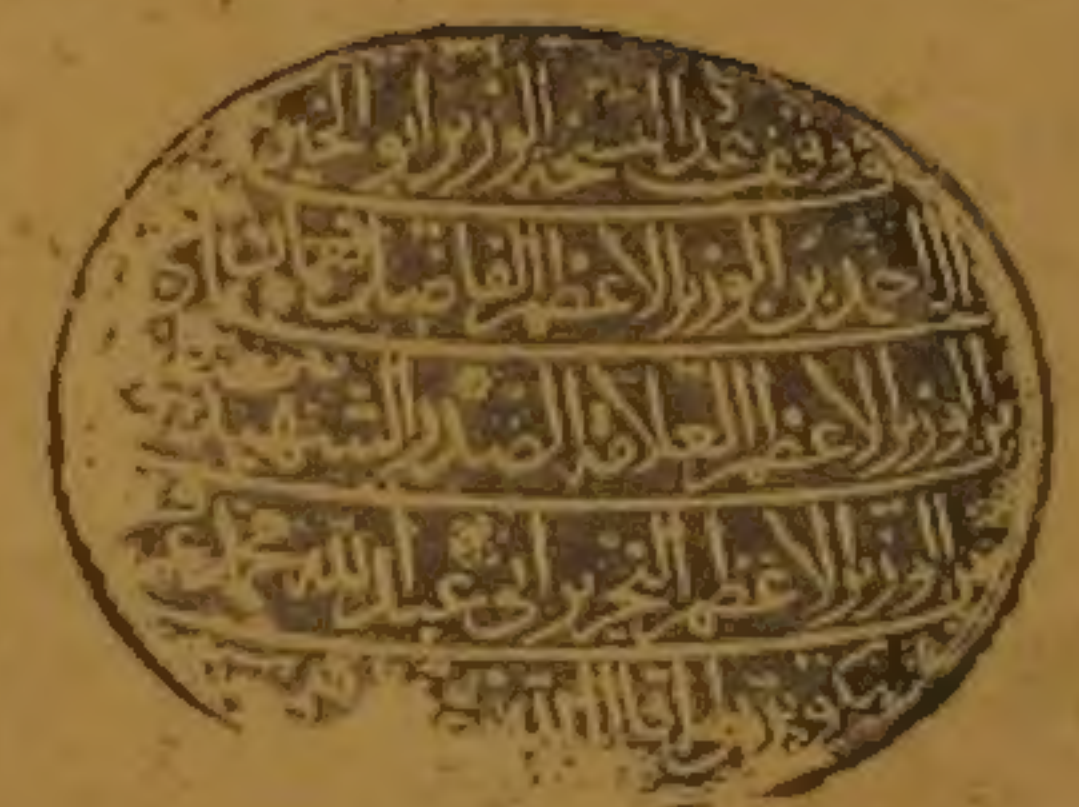 قد وقف هذه النسخة الوزير ابو الخير
احمد بن الوزير الاعظم الفاضل نعمان
بن الوزير الاعظم العلامة الصدر الشهيد
بن الوزير الاعظم النحرير ابي عبد الله محمد عرف
بكوبريلي اقال الله